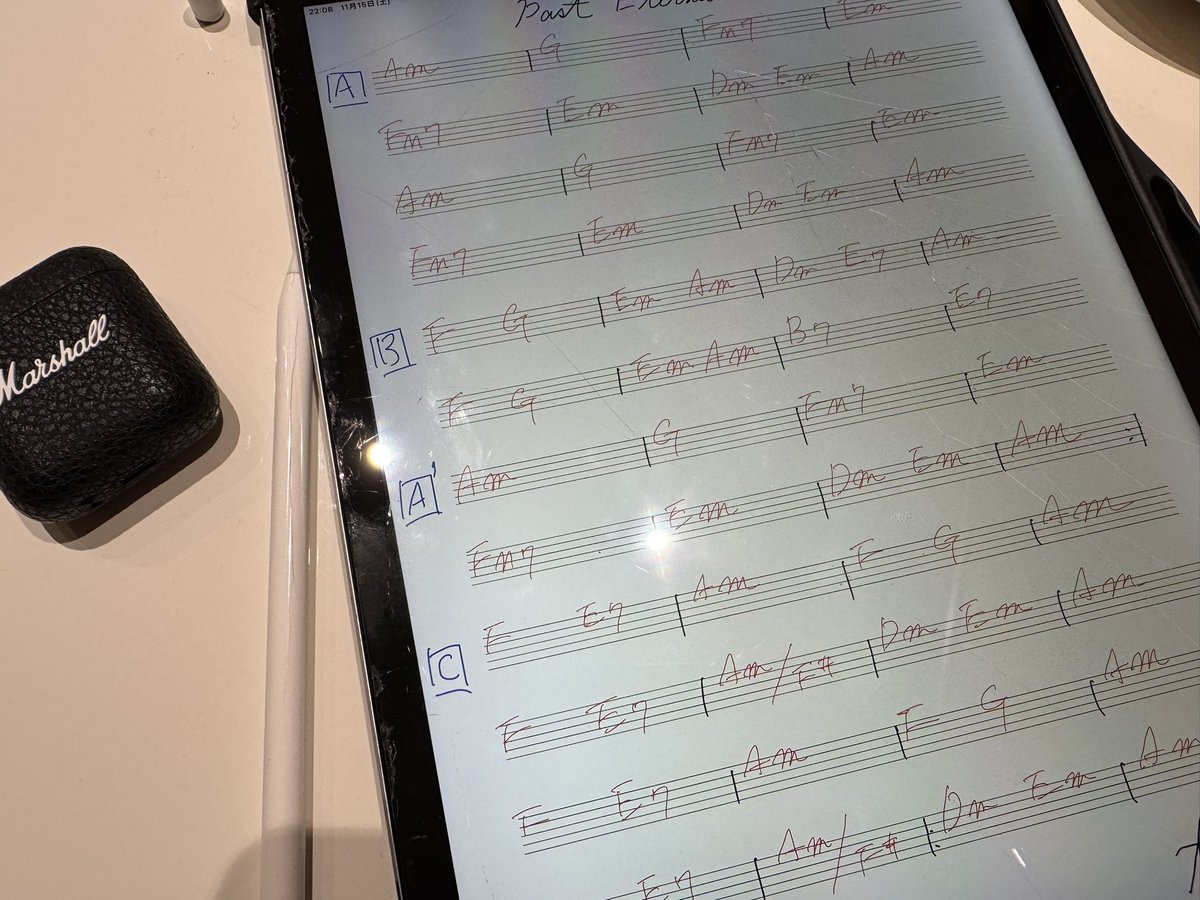 22:08 11月15日(土)
Past
A Am G Fm7 Em
Fm7 Em Dm Em Am
Am G Fm7 Em
Fm7 Em Dm Em Am
B F G Em Am Dm E7 Am
F G Em Am B7 E7
A' Am G Fm7 Em
Fm7 Em Dm Em Am
C F E7 Am F G Am
F E7 Am/F# Dm Em Am
F E7 Am F G Am
E7 Am/F# Dm Em Am
Marshall